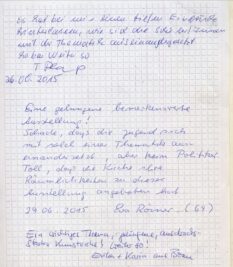 Es hat bei mir einen tiefen Eindruck
hinterlassen, wie sich die Schüler/innen
mit der Thematik auseinandergesetzt
haben. Weiter so
26.06.2015
Eine gelungene bemerkenswerte
Ausstellung!
Schade, dass die Jugend sich
mit solch einer Thematik aus-
einandersetzt, aber kein Politiker
Toll, dass die Kirche ihre
Räumlichkeiten zu dieser
Ausstellung angeboten hat
29.06.2015 Eva Römer (64)
Ein wichtiges Thema, gelungene, ausdrucks-
starke Kunstwerke! Weiter so!
+ Karin aus